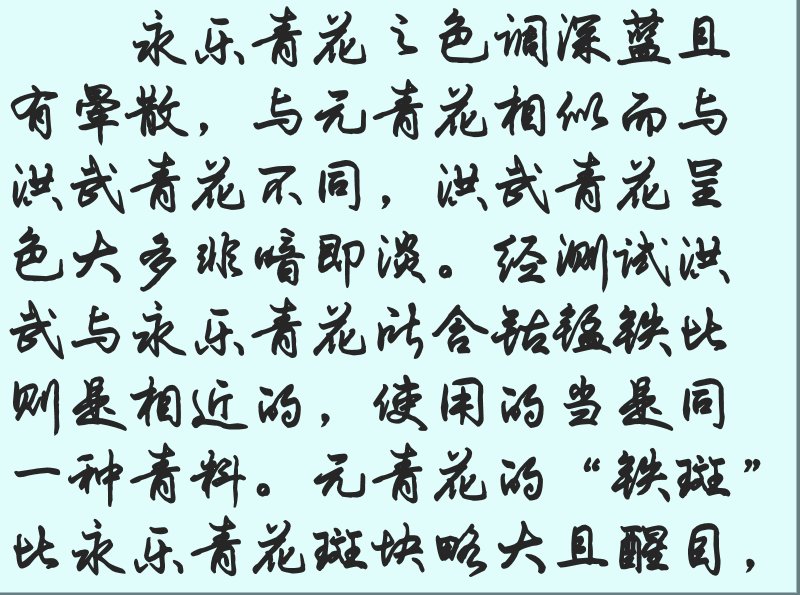 永乐青花之色调深蓝且
有晕散，与元青花相似而与
洪武青花不同，洪武青花呈
色大多非暗即淡。经测试洪
武与永乐青花所含钴锰铁比
则是相近的，使用的当是同
一种青料。元青花的“铁斑”
比永乐青花斑块略大且醒目，